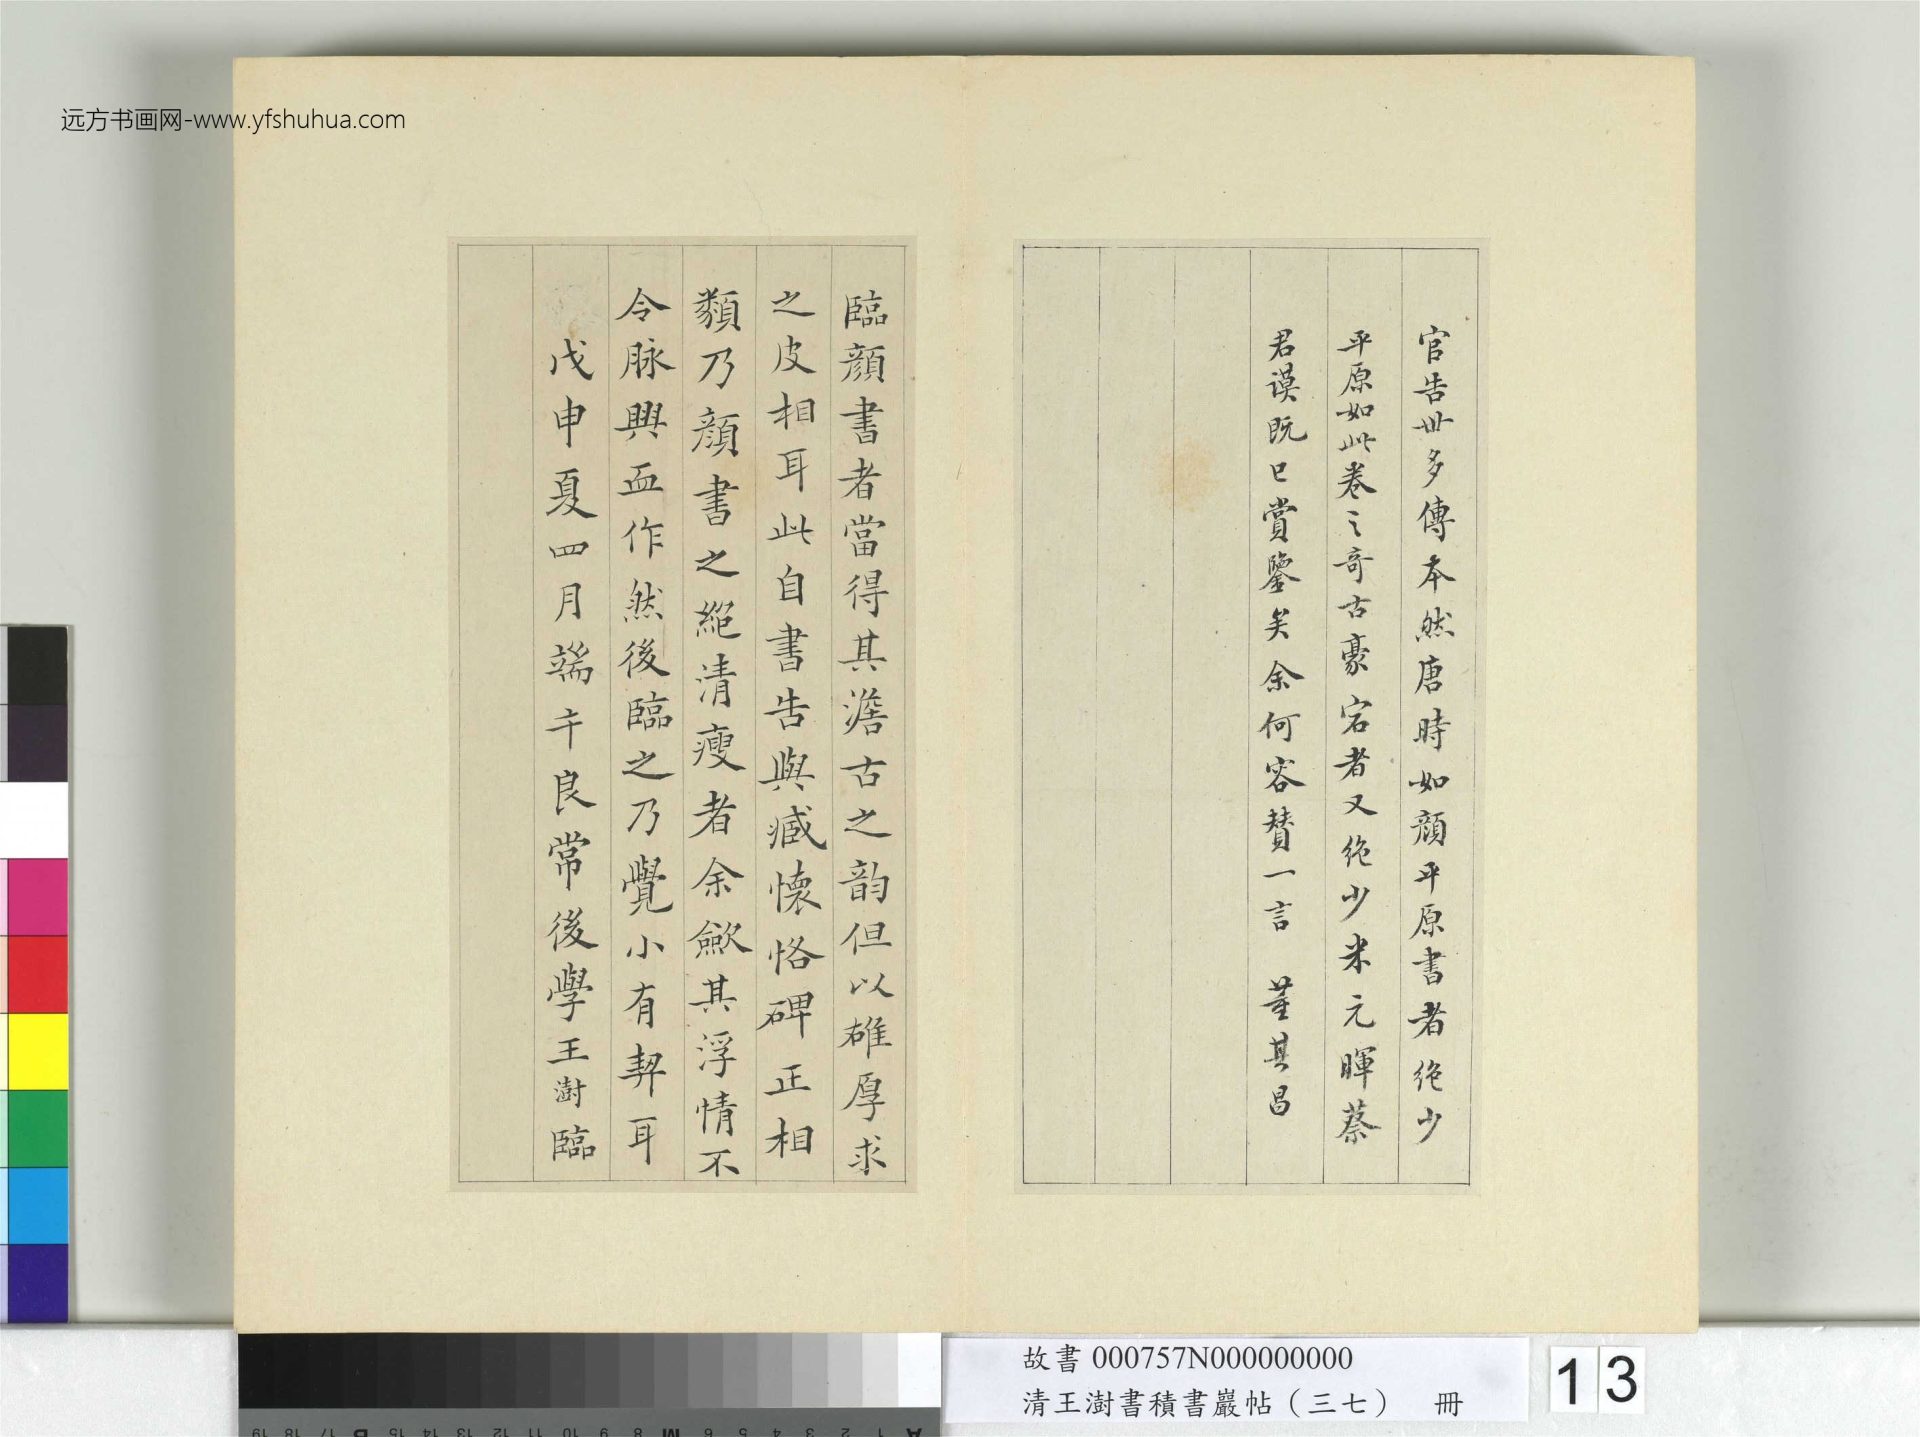 远方书画网-www.yfshuhua.com
官告世多傳本然唐時如顔平原書者絶少
平原如此卷之奇古豪宕者又絶少米元暉蔡
君謨既已賞鑒矣余何容賛一言 董其昌
臨顔書者當得其澹古之韵但以雄厚求
之皮相耳此自書告與臧懷恪碑正相
類乃顔書之絕清瘦者余歛其浮情不
令脉興血作然後臨之乃覺小有契耳
戊申夏四月端午良常後學王澍臨
故書 000757N000000000
清王澍書積書巖帖（三七） 冊
13